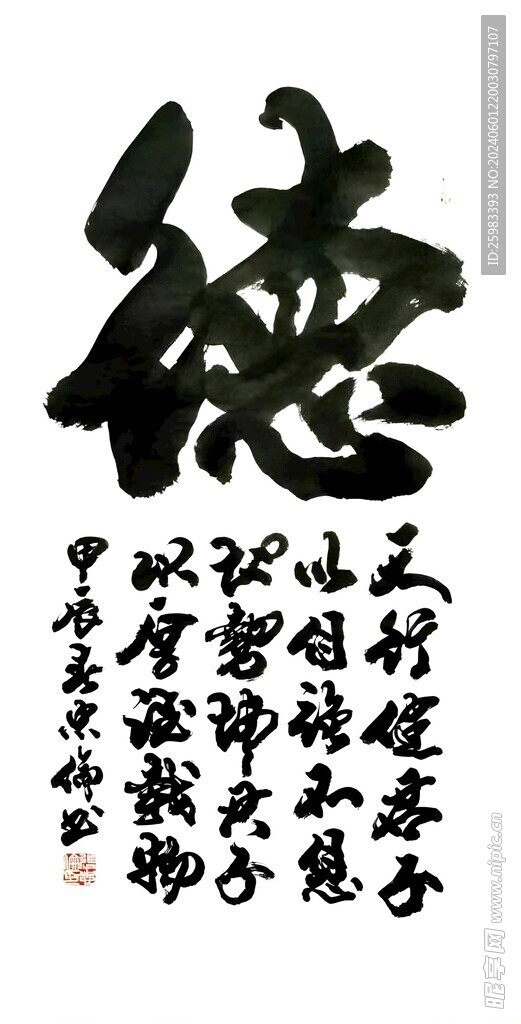 德
天行健君子
以自強不息
地勢坤君子
以厚德載物
甲辰春忠倫书
ID:25983393 NO:20240601220030797107
昵享网 www.nipic.cn